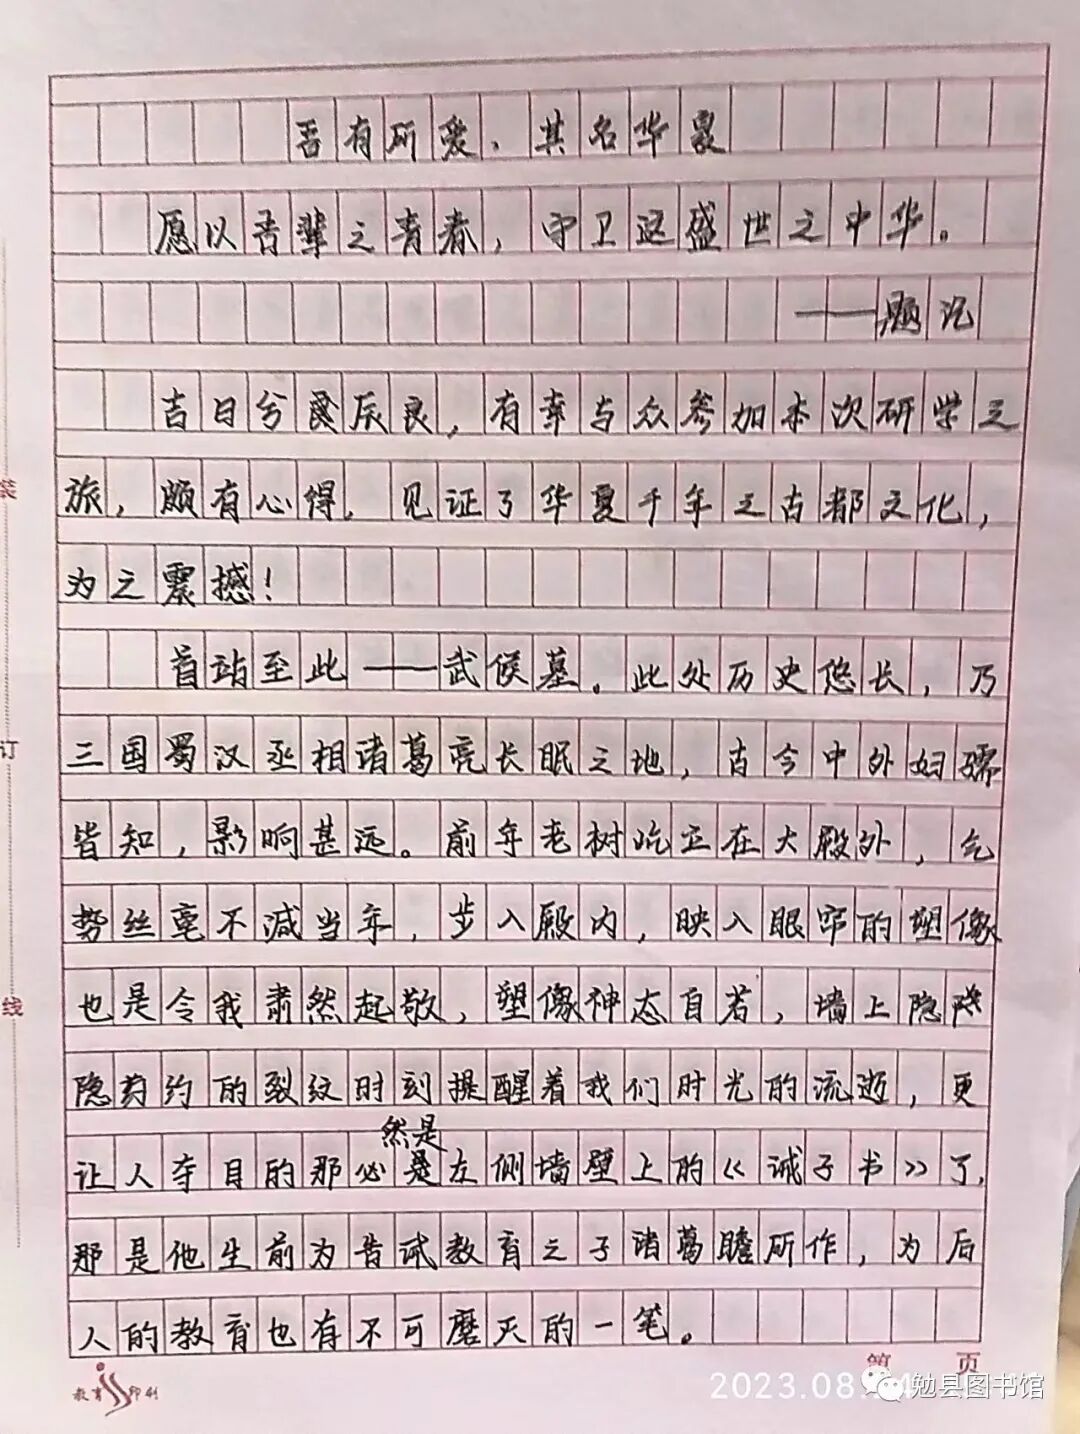 吾有所爱，其名华夏
愿以吾辈之青春，守卫这盛世之中华。
——题记
吉日兮良辰良，有幸与众参加本次研学之
旅，颇有心得，见证了华夏千年之古都文化，
为之震撼！
首站至此——武侯墓。此处历史悠长，乃
三国蜀汉丞相诸葛亮长眠之地，古今中外妇孺
皆知，影响甚远。前年老树屹立在大殿外，气
势丝毫不减当年，步入殿内，映入眼帘的塑像
也是令我肃然起敬，塑像神态自若，墙上隐隐
隐约约的裂纹时刻提醒着我们时光的流逝，更
然是
让人夺目的那必是左侧墙壁上的《诫子书》了，
那是他生前为告诫教育之子诸葛瞻所作，为后
人的教育也有不可磨灭的一笔。
装
订
线
教育印刷
第 页
2023.08
勉县图书馆